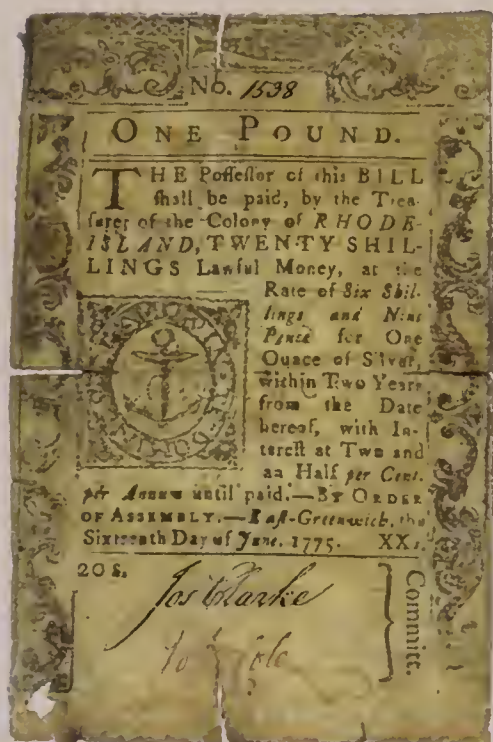 No. 1538
ONE POUND.
THE Poſſeſſor of this BILL
ſhall be paid, by the Trea-
ſurer of the Colony of RHODE-
ISLAND, TWENTY SHIL-
LINGS Lawful Money, at the
Rate of Six Shil-
lings and Nine
Pence for One
Ounce of Silver,
within Two Years
from the Date
hereof, with In-
tereſt at Two and
an Half per Cent.
per Annum until paid.—BY ORDER
OF ASSEMBLY.—Eaſt-Greenwich, the
Sixteenth Day of June, 1775. XXs.
20 s.
Jos Clarke
Committ.